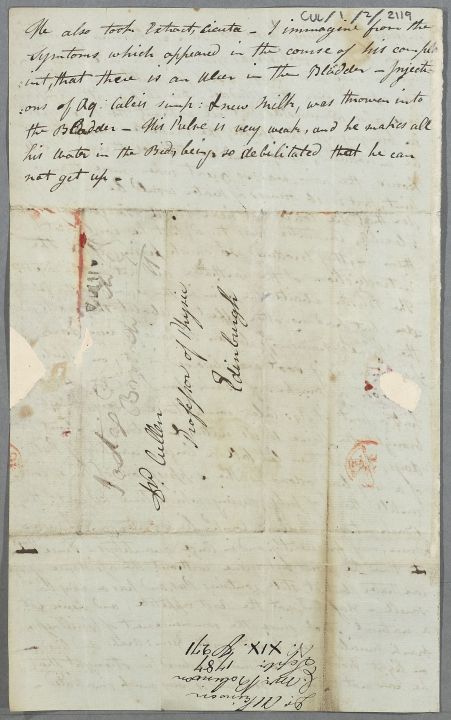 CUL/1/2/2119
He also took Extract, Cicuta - I immagine from the
Symtoms, which appeared in the course of his compl-
int, that there is an Ulcer in the Bladder - Inject-
ions of Aq: Calcis simp: & new Milk, was thrown into
the Bladder - His Pulse is very weak, and he makes all
his water in the Bed, being so debilitated that he can
not get up -
Dr. Cullen
Professor of Physic
Edinburgh
Dr.
C. Mr. Robinson
Septr. 1784
N. XIX. p 271